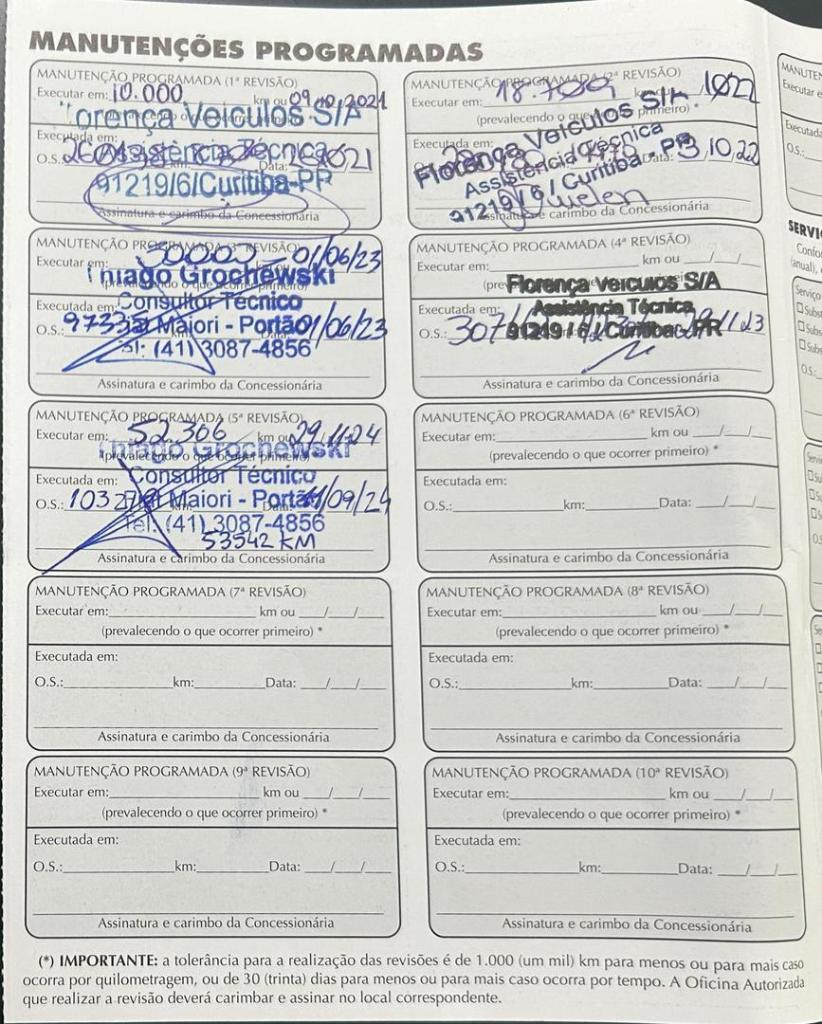 MANUTENÇÕES PROGRAMADAS
MANUTENÇÃO PROGRAMADA (1ª REVISÃO)
Executar em: 10.000 km ou 09.10.2021
Florença Veículos S/A
Executada em:
Assistência Técnica
O.S.: Data:
91219/6/Curitiba-PR
Assinatura e carimbo da Concessionária
MANUTENÇÃO PROGRAMADA (2ª REVISÃO)
Executar em: 1022
(prevalecendo o que ocorrer primeiro)
Florença Veículos S/A
Executada em:
Assistência Técnica
O.S.: Data: 3,10,22
91219/6/Curitiba-PR
Assinatura e carimbo da Concessionária
MANUTENÇÃO PROGRAMADA (3ª REVISÃO)
Executar em: 01/06/23
Thiago Grochewski
Executada em: Consultor Técnico
O.S.: Maiori - Portão 01/06/23
Tel: (41) 3087-4856
Assinatura e carimbo da Concessionária
MANUTENÇÃO PROGRAMADA (4ª REVISÃO)
Executar em: km ou __/__/__
Florença Veículos S/A
Executada em: Assistência Técnica
O.S.: 91219/6/Curitiba-PR
Assinatura e carimbo da Concessionária
MANUTENÇÃO PROGRAMADA (5ª REVISÃO)
Executar em: 52.306 km ou 29/11/24
(prevalecendo o que ocorrer primeiro) *
Thiago Grochewski
Executada em: Consultor Técnico
O.S.: Maiori - Portão /09/24
Tel: (41) 3087-4856
53542 KM
Assinatura e carimbo da Concessionária
MANUTENÇÃO PROGRAMADA (6ª REVISÃO)
Executar em: km ou __/__/__
(prevalecendo o que ocorrer primeiro) *
Executada em:
O.S.: km: Data: __/__/__
Assinatura e carimbo da Concessionária
MANUTENÇÃO PROGRAMADA (7ª REVISÃO)
Executar em: km ou __/__/__
(prevalecendo o que ocorrer primeiro) *
Executada em:
O.S.: km: Data: __/__/__
Assinatura e carimbo da Concessionária
MANUTENÇÃO PROGRAMADA (8ª REVISÃO)
Executar em: km ou __/__/__
(prevalecendo o que ocorrer primeiro) *
Executada em:
O.S.: km: Data: __/__/__
Assinatura e carimbo da Concessionária
MANUTENÇÃO PROGRAMADA (9ª REVISÃO)
Executar em: km ou __/__/__
(prevalecendo o que ocorrer primeiro) *
Executada em:
O.S.: km: Data: __/__/__
Assinatura e carimbo da Concessionária
MANUTENÇÃO PROGRAMADA (10ª REVISÃO)
Executar em: km ou __/__/__
(prevalecendo o que ocorrer primeiro) *
Executada em:
O.S.: km: Data: __/__/__
Assinatura e carimbo da Concessionária
(*) IMPORTANTE: a tolerância para a realização das revisões é de 1.000 (um mil) km para menos ou para mais caso
ocorra por quilometragem, ou de 30 (trinta) dias para menos ou para mais caso ocorra por tempo. A Oficina Autorizada
que realizar a revisão deverá carimbar e assinar no local correspondente.